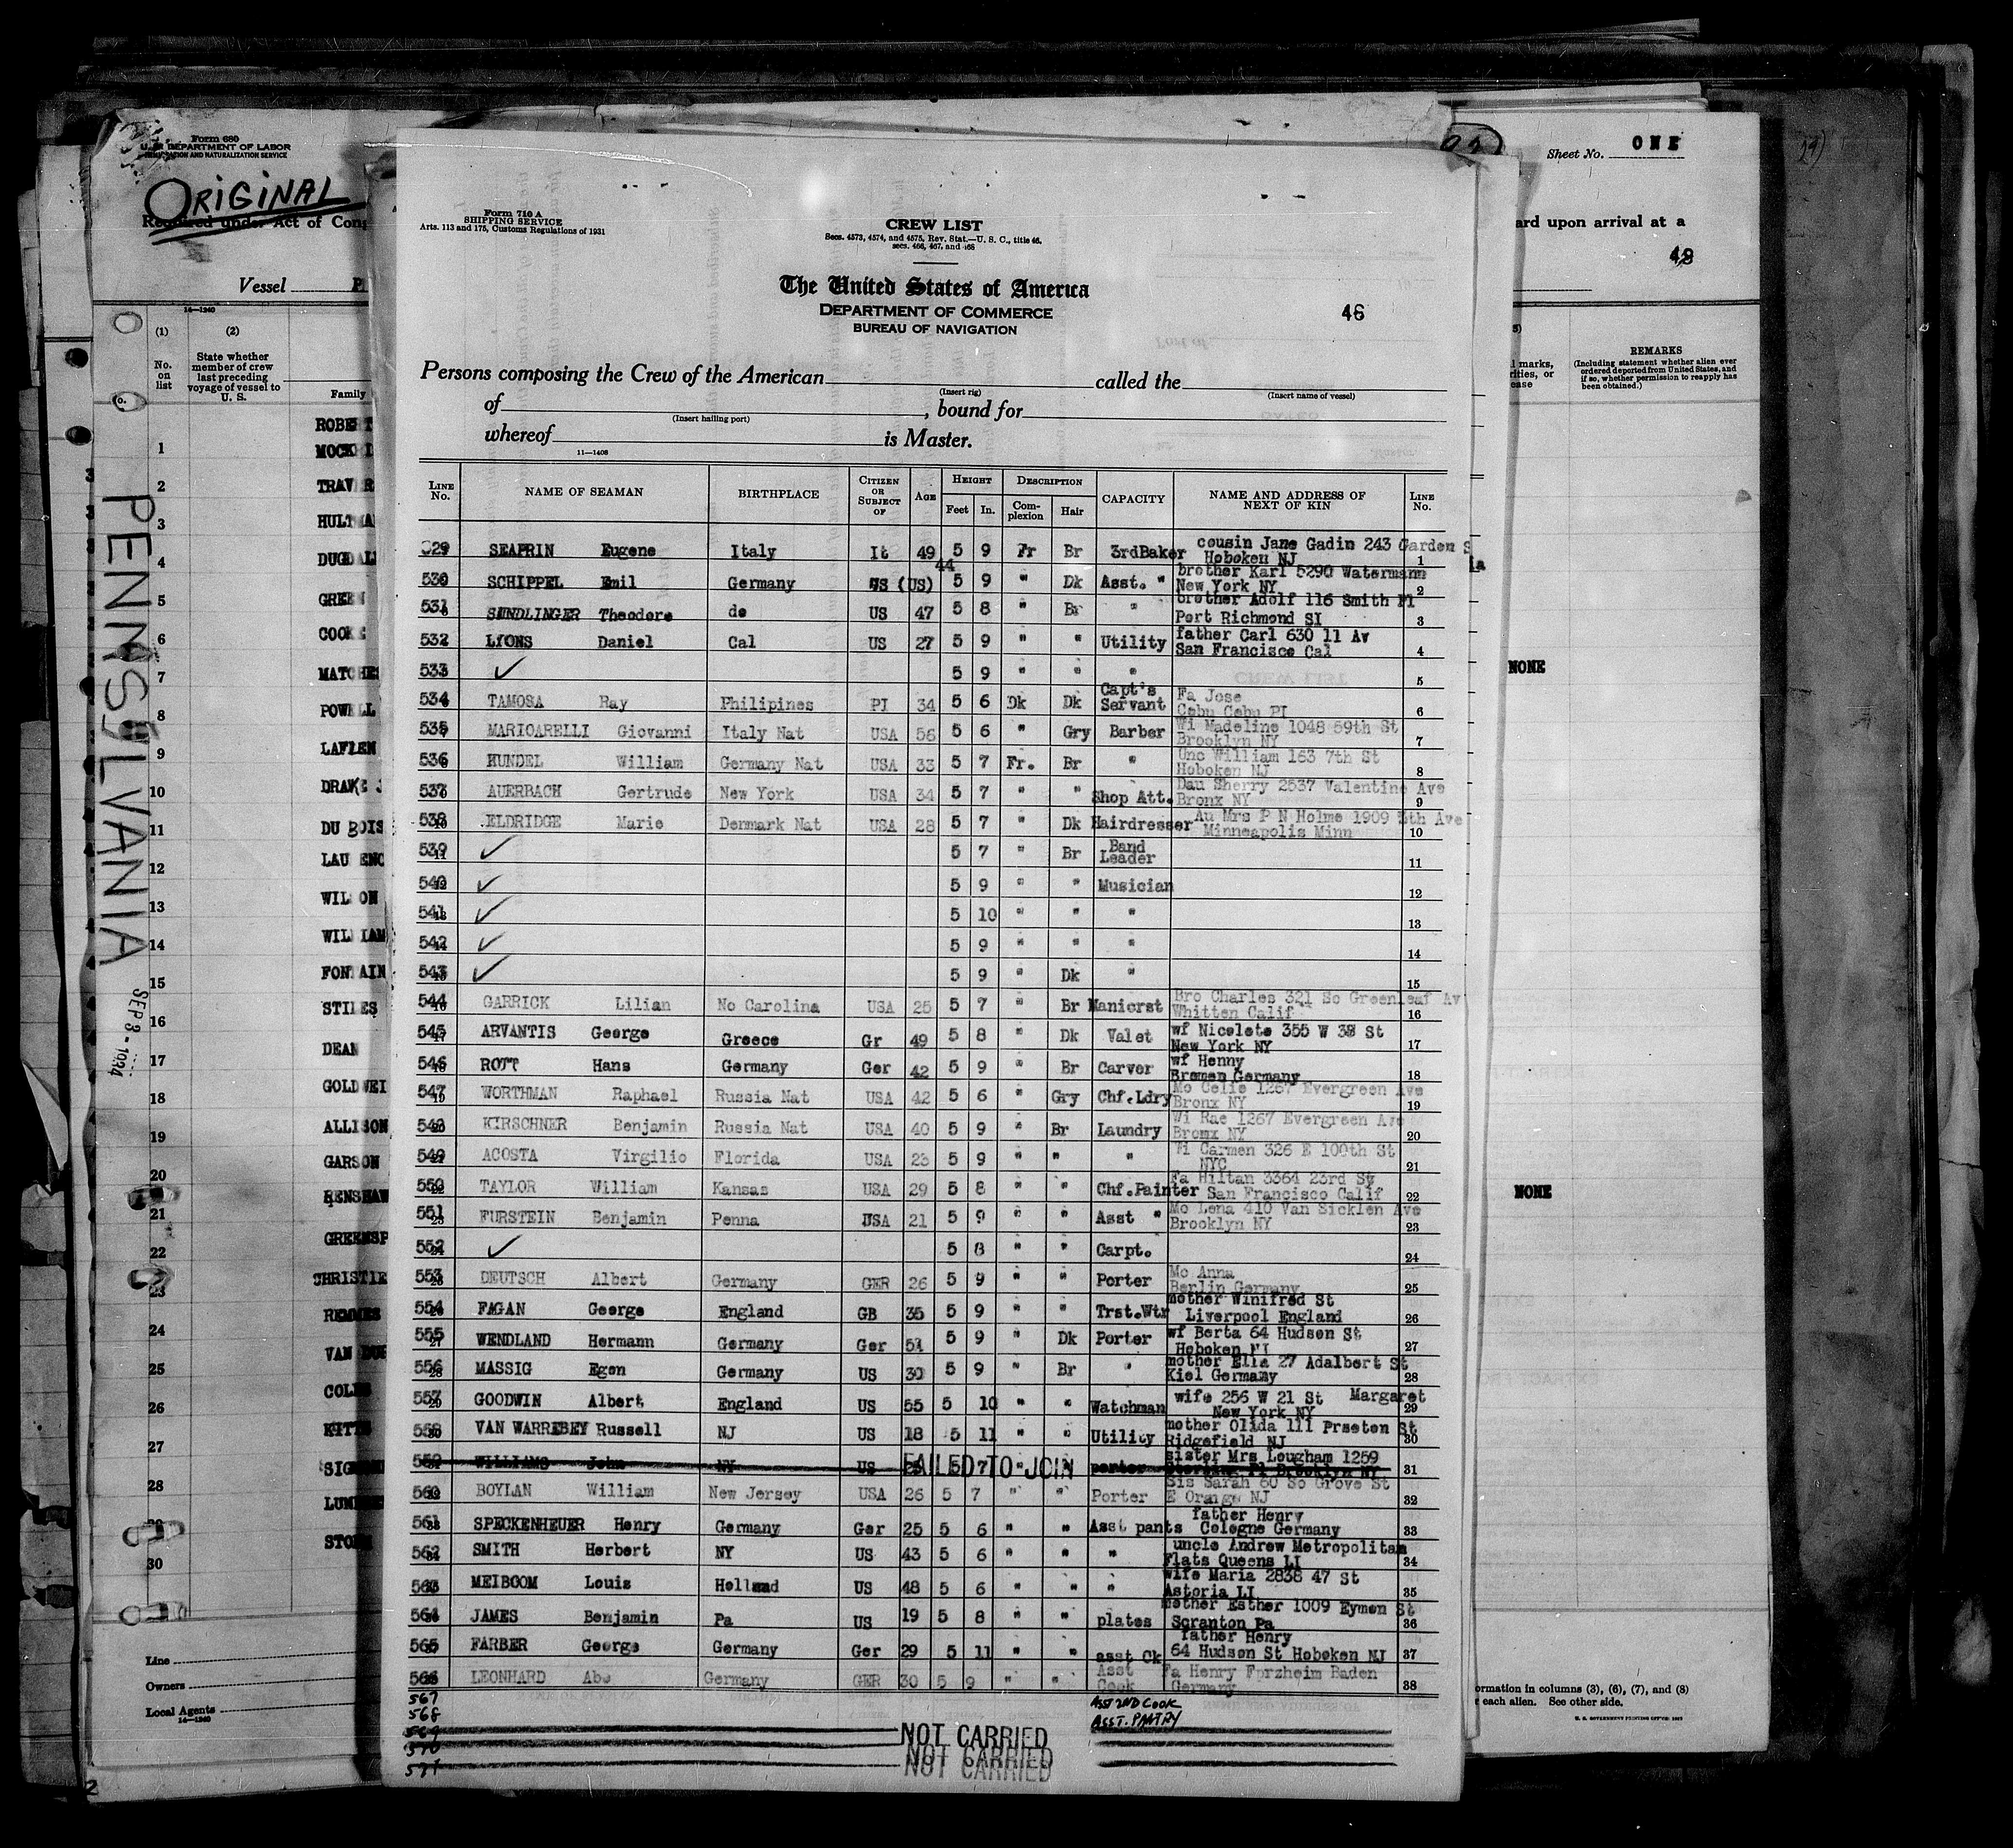 Form 680
U. S. DEPARTMENT OF LABOR
IMMIGRATION AND NATURALIZATION SERVICE
ORIGINAL
Required under Act of Cong
Vessel P
14—1240
(1) (2)
No. on list
State whether member of crew last preceding voyage of vessel to U. S.
Family
ROBERT
1 MOCK
2 TRAV R
3 HULTMA
4 DUGDALL
5 GREEN
6 COOKE
7 MATCHE
8 POWELL
9 LAFLEN
10 DRAKE J
11 DU BOIS
12 LAU ENC
13 WILSON
14 WILLIAM
15 FONTAIN
16 STILES
17 DEAN
18 GOLDWEI
19 ALLISON
20 GARSON
21 RENSHAW
22 GREENSP
23 CHRISTIE
24 REMMES
25 VAN
26 COLE
27
28
29
30 STO
Line
Owners
Local Agents
14—1240
PENNSYLVANIA
SEP 3 - 1934
2
Form 710 A
SHIPPING SERVICE
Arts. 113 and 175, Customs Regulations of 1931
CREW LIST
Secs. 4573, 4574, and 4575, Rev. Stat.—U. S. C., title 46,
secs. 466, 467, and 468
The United States of America
DEPARTMENT OF COMMERCE
BUREAU OF NAVIGATION
46
Persons composing the Crew of the American called the
(Insert rig) (Insert name of vessel)
of , bound for
(Insert hailing port)
whereof is Master.
11—1408
LINE No. NAME OF SEAMAN BIRTHPLACE CITIZEN OR SUBJECT OF AGE HEIGHT Feet In. DESCRIPTION Complexion Hair CAPACITY NAME AND ADDRESS OF NEXT OF KIN LINE No.
529 SEAFRIN Eugene Italy It 49 5 9 Fr Br 3rdBaker cousin Jane Gadin 243 Garden S Hoboken NJ 1
530 SCHIPPEL Emil Germany US (US) 44 5 9 " Dk Asst. " brother Karl 5290 Watermann New York NY 2
531 SENDLINGER Theodore do US 47 5 8 " Br " brother Adolf 116 Smith Pl Port Richmond SI 3
532 LYONS Daniel Cal US 27 5 9 " " Utility father Carl 630 11 Av San Francisco Cal 4
533 ✓ 5 9 " " " 5
534 TAMOSA Ray Philipines PI 34 5 6 Dk Dk Capt's Servant Fa Jose Cebu Cebu PI 6
535 MARICARELLI Giovanni Italy Nat USA 56 5 6 " Gry Barber Wi Madeline 1048 59th St Brooklyn NY 7
536 HUNDEL William Germany Nat USA 33 5 7 Fr. Br " Unc William 163 7th St Hoboken NJ 8
537 AUERBACH Gertrude New York USA 34 5 7 " " Shop Att. Dau Sherry 2537 Valentine Ave Bronx NY 9
538 ELDRIDGE Marie Denmark Nat USA 28 5 7 " Dk Hairdresser Au Mrs P N Holme 1909 5th Ave Minneapolis Minn 10
539 ✓ 5 7 " Br Band Leader 11
540 ✓ 5 9 " " Musician 12
541 ✓ 5 10 " " " 13
542 ✓ 5 9 " " " 14
543 ✓ 5 9 " Dk " 15
544 GARRICK Lilian No Carolina USA 25 5 7 " Br Manicrst Bro Charles 321 So Greenleaf Av Whitten Calif 16
545 ARVANTIS George Greece Gr 49 5 8 " Dk Valet wf Nicolete 355 W 38 St New York NY 17
546 ROTT Hans Germany Ger 42 5 9 " Br Carver wf Henny Bremen Germany 18
547 WORTHMAN Raphael Russia Nat USA 42 5 6 " Gry Chf.Ldry Mo Celie 1267 Evergreen Ave Bronx NY 19
548 KIRSCHNER Benjamin Russia Nat USA 40 5 9 " Br Laundry Wi Rae 1267 Evergreen Ave Bronx NY 20
549 ACOSTA Virgilio Florida USA 23 5 9 " " " Wi Carmen 326 E 100th St NYC 21
550 TAYLOR William Kansas USA 29 5 8 " " Chf.Painter Fa Hiltan 3364 23rd Sy San Francisco Calif 22
551 FURSTEIN Benjamin Penna USA 21 5 9 " " Asst " Mo Lena 410 Van Sicklen Ave Brooklyn NY 23
552 ✓ 5 8 " " Carpt. 24
553 DEUTSCH Albert Germany GER 26 5 9 " " Porter Mo Anna Berlin Germany 25
554 FAGAN George England GB 35 5 9 " " Trst.Wtr mother Winifred St Liverpool England 26
555 WENDLAND Hermann Germany Ger 51 5 9 " Dk Porter wf Berta 64 Hudson St Hoboken NJ 27
556 MASSIG Egon Germany US 30 5 9 " Br " mother Ella 27 Adalbert St Kiel Germany 28
557 GOODWIN Albert England US 55 5 10 " " Watchman wife 256 W 21 St Margaret New York NY 29
558 VAN WARREBEY Russell NJ US 18 5 11 " " Utility mother Olida 111 Praeton St Ridgefield NJ 30
559 WILLIAMS John NY US 5 7 FAILED TO JOIN porter sister Mrs Lougham 1259 Sterling Pl Brooklyn NY 31
560 BOYLAN William New Jersey USA 26 5 7 " " Porter Sis Sarah 60 So Grove St E Orange NJ 32
561 SPECKENHEUER Henry Germany Ger 25 5 6 " " Asst pants father Henry Cologne Germany 33
562 SMITH Herbert NY US 43 5 6 " " " uncle Andrew Metropolitan Flats Queens LI 34
563 MEIBOOM Louis Holland US 48 5 6 " " " wife Maria 2838 47 St Astoria LI 35
564 JAMES Benjamin Pa US 19 5 8 " " plates mother Esther 1009 Eymon St Scranton Pa 36
565 FARBER George Germany Ger 29 5 11 " " asst Ck father Henry 64 Hudson St Hoboken NJ 37
566 LEONHARD Abe Germany GER 30 5 9 " " Asst Cook Fa Henry Forzheim Baden Germany 38
567 ASST 2ND COOK
568 ASST. PANTRY
569 NOT CARRIED
570 NOT CARRIED
571
Sheet No. ONE
ard upon arrival at a
REMARKS
(Including statement whether alien ever ordered deported from United States, and if so, whether permission to reapply has been obtained.)
NONE
NONE
ormation in columns (3), (6), (7), and (8)
each alien. See other side.
U. S. GOVERNMENT PRINTING OFFICE